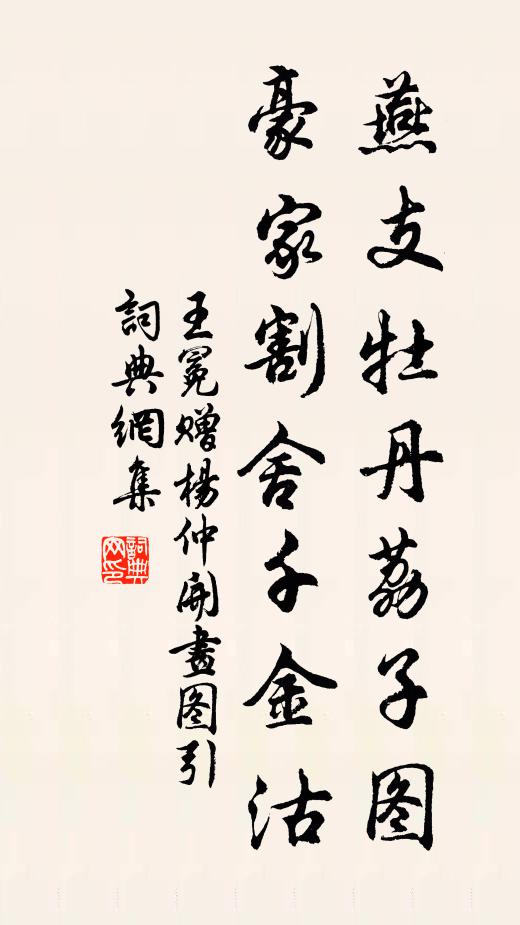 燕支牡丹荔子图
豪家割舍千金沽
王冕赠杨仲開畫图引
詞典網集
詞典网印